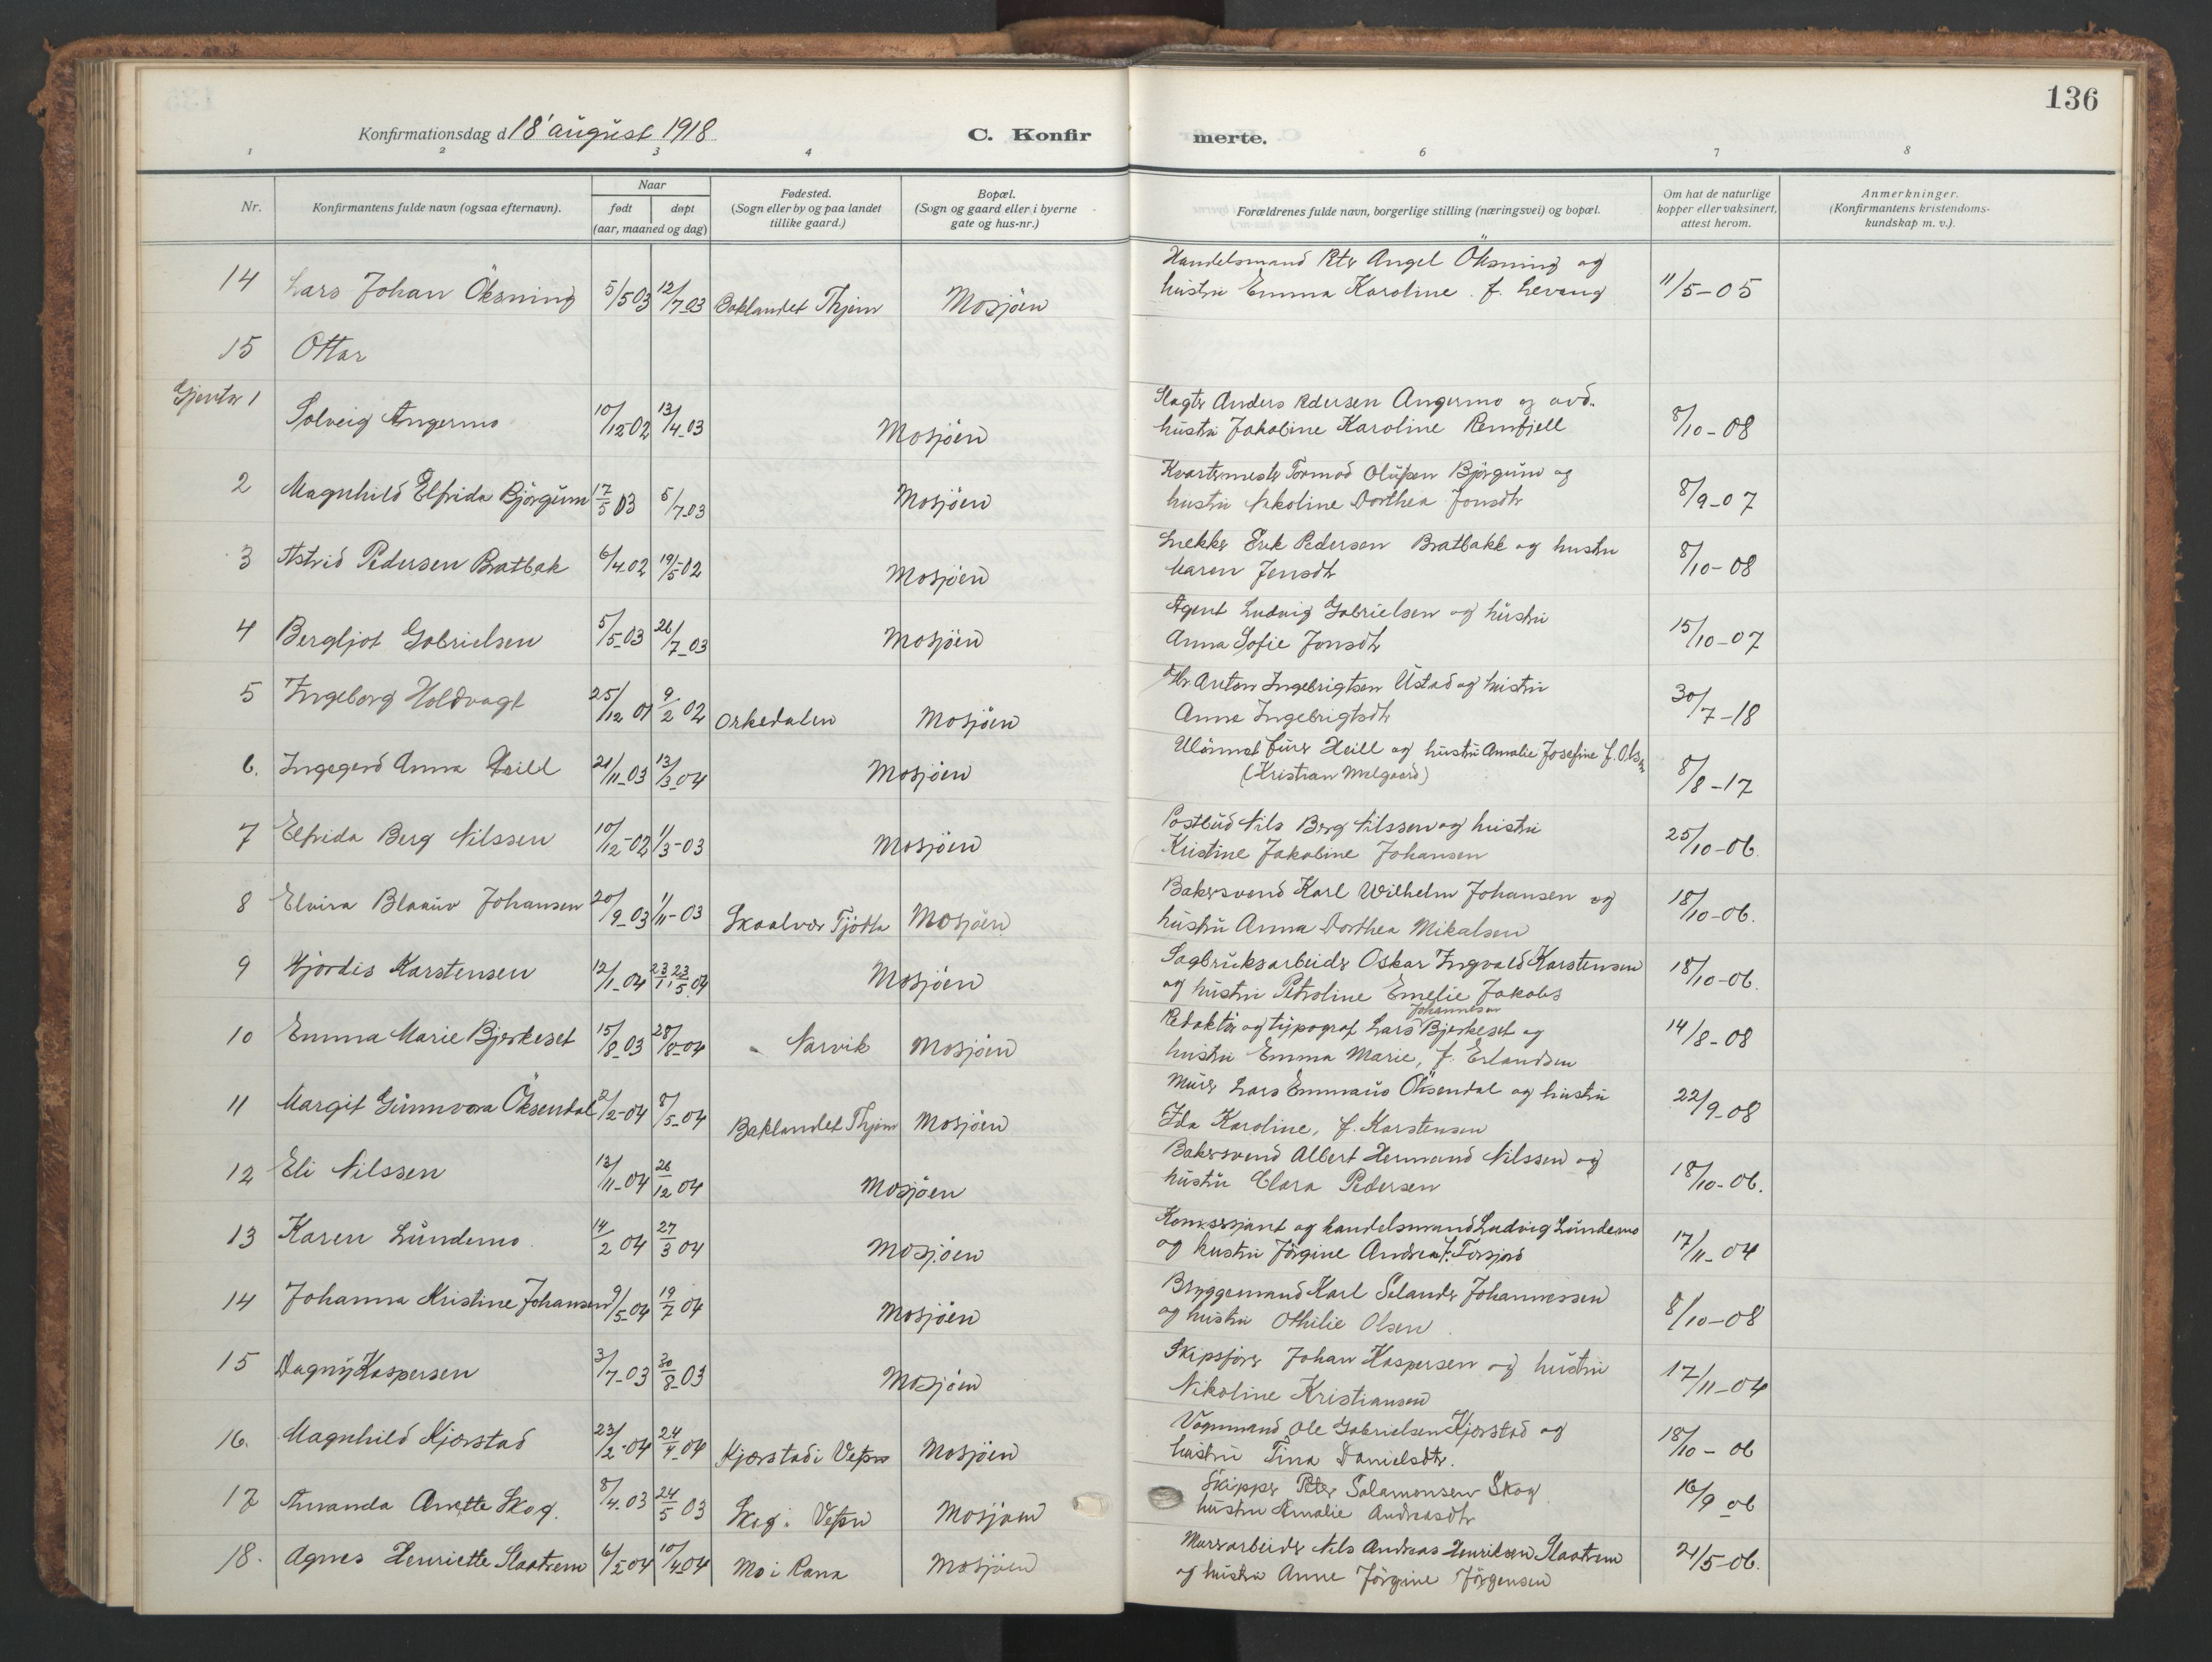 136
Konfirmationsdag d. 18' august 1918
C. Konfir
merte.
1 2 3 4 6 7 8
Nr.
Konfirmantens fulde navn (ogsaa efternavn).
Naar
født
døpt
(aar, maaned og dag)
Fødested.
(Sogn eller by og paa landet
tillike gaard.)
Bopæl.
(Sogn og gaard eller i byerne
gate og hus-nr.)
Forældrenes fulde navn, borgerlige stilling (næringsvei) og bopæl.
Om hat de naturlige
kopper eller vaksinert,
attest herom.
Anmerkninger.
(Konfirmantens kristendoms-
kundskap m. v.).
14 Lars Johan Öksning 5/5 03 12/7-03 Baklandet Thjem Mosjöen
Handelsmand Ptr Angel Öksning og
hustru Emma Karoline f. Levang 11/5-05
15 Ottar
Gjenter 1 Solveig Angermo 10/12 02 13/4-03 Mosjöen
Slagter Anders Pedersen Angermo og avd.
hustru Jakobine Karoline Remfjell 8/10-08
2 Magnhild Elfrida Björgum 17/5 03 5/7-03 Mosjöen
Kvartermester Tormod Olufsen Björgum og
hustru Nikoline Dorthea Jonsdtr 8/9-07
3 Astrid Pedersen Bratbak 6/4.02 19/5-02 Mosjöen
Snekker Erik Pedersen Bratbakk og hustru
Maren Jensdtr 8/10-08
4 Bergljot Gabrielsen 5/5-03 26/7-03 Mosjöen
Agent Ludvig Gabrielsen og hustru
Anna Sofie Jonsdtr 15/10-07
5 Ingeborg Holdvagt 25/12 01 9/2 02 Orkedalen Mosjöen
Anton Ingebrigtsen Ustad og hustru
Anne Ingebrigtsdtr 30/7-18
6. Ingegerd Anna Heill 21/11-03 13/3-04 Mosjöen
Heill og hustru Amalie Josefine f. Olsen
(Kristian Melgaard) 8/8-17
7 Elfrida Berg Nilssen 10/12-02 1/3-03 Mosjöen
Postbud Nils Berg Nilssen og hustru
Kristine Jakobine Johansen 25/10-06.
8 Elvira Blaauw Johansen 20/9-03 1/11-03 Skaalvær Tjötta Mosjöen
Bakersvend Karl Wilhelm Johansen og
hustru Anna Dorthea Mikalsen 18/10-06.
9 Hjördis Karstensen 12/1-04 23/1, 23/5.04 Mosjöen
Sagbruksarbeider Oskar Ingvald Karstensen
og hustru Petroline Emelie Jakobs 18/10-06.
10 Emma Marie Bjerkeset 15/8-03 28/8-04 Narvik Mosjöen
Johannesen
Redaktör og typograf Lars Bjerkeset og
hustru Emma Marie, f. Erlandsen 14/8-08
11 Margit Gunnvora Öksendal 2/2-04 8/5-04 Baklandet Thjem Mosjöen
Murer Lars Emmaus Öksendal og hustru
Ida Karoline, f. Karstensen 22/9-08
12 Eli Nilssen 13/11-04 26/12 04 Mosjöen
Bakersvend Albert Hermand Nilssen og
hustru Clara Pedersen 18/10-06.
13 Karen Lundemo 14/2 04 27/3 04 Mosjöen
og handelsmand Ludvig Lundemo
og hustru Jörgine Andrea f. Forsjord 17/11-04
14 Johanna Kristine Johansen 9/5-04 19/7 04 Mosjöen
Bryggemand Karl Selander Johannessen
og hustru Othilie Olsen 8/10-08
15 Dagny Kaspersen 3/7-03 30/8-03 Mosjöen
Skipsförer Johan Kaspersen og hustru
Nikoline Kristiansen 17/11-04
16. Magnhild Kjærstad 23/2-04 24/4-04 Kjærstad i Vefsn Mosjöen
Vognmand Ole Gabrielsen Kjærstad og
hustru Tina Danielsdtr. 18/10-06
17 Amanda Anette Skog. 8/4-03 24/5 03 Skog i Vefsn Mosjöen
Skipper Peter Salamonsen Skog
hustru Amalie Andreasdtr 16/9 06
18. Agnes Henriette Slaatrem 6/2 04 10/4 04 Mo i Rana Mosjöen
Murerarbeider Nils Andreas Henriksen Slaatrem
og hustru Anne Jörgine Jörgensen 21/5-06.